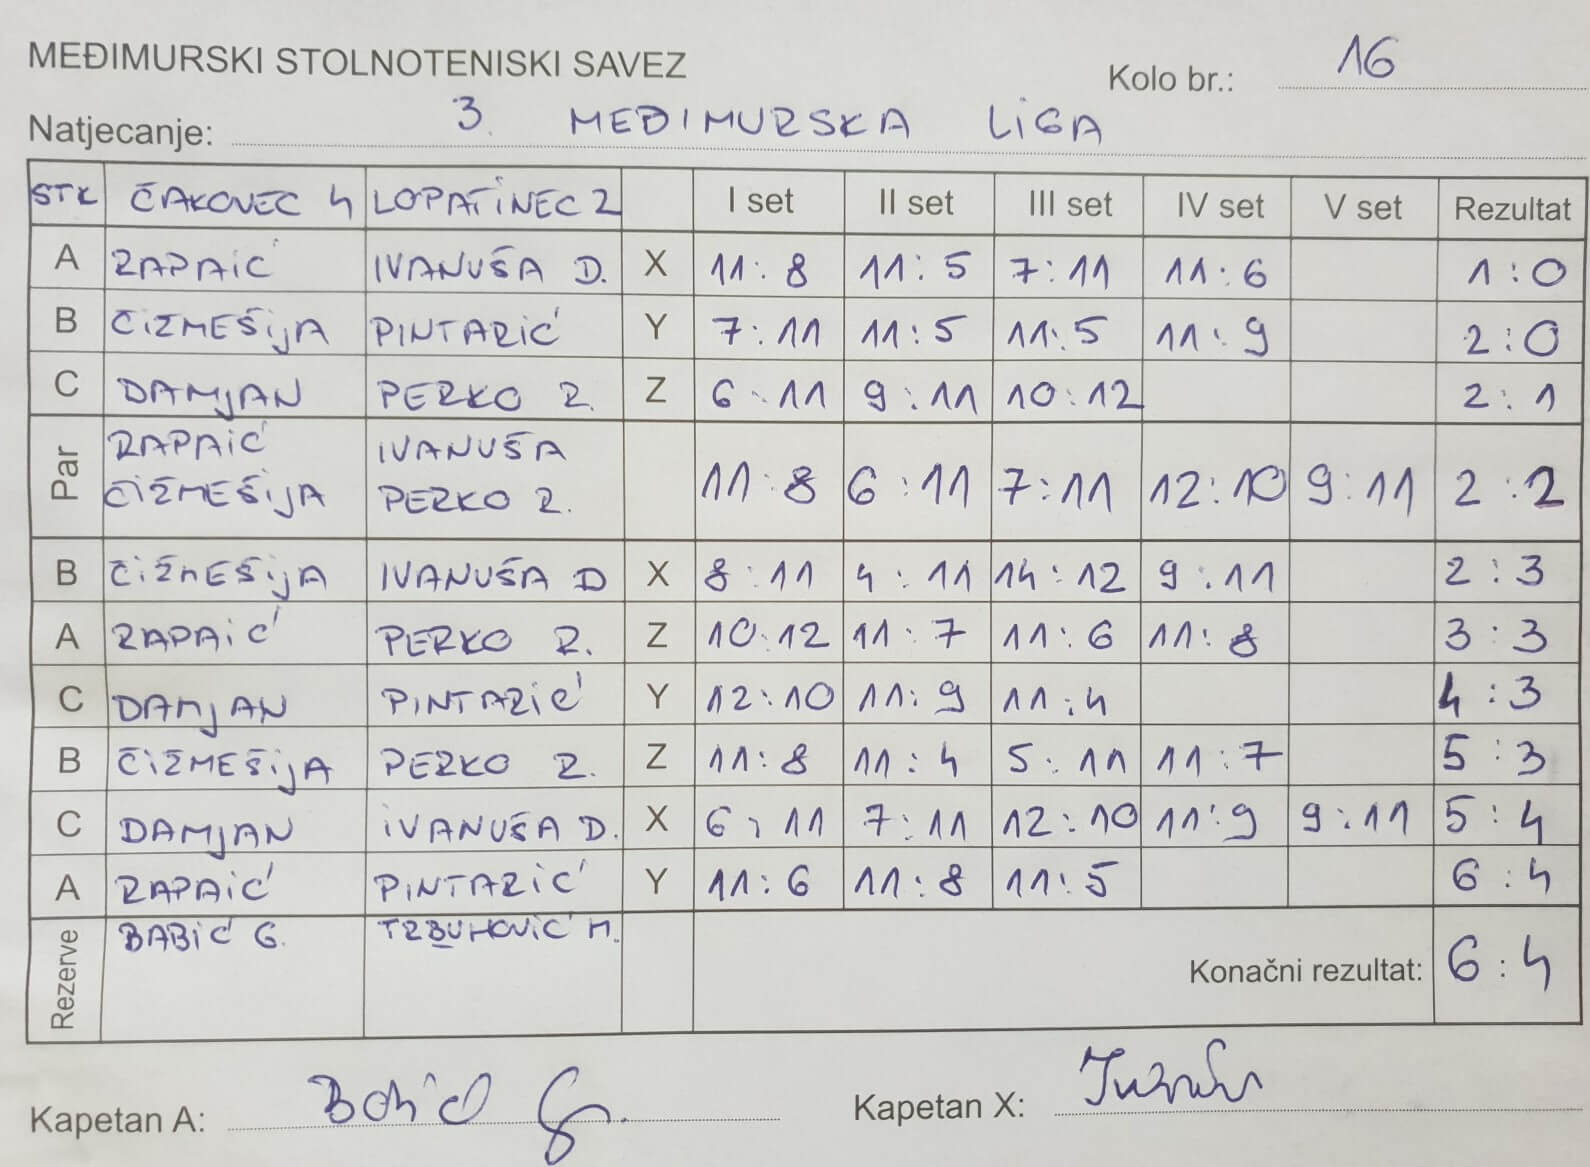 MEĐIMURSKI STOLNOTENISKI SAVEZ
Kolo br.: 16
Natjecanje: 3. MEĐIMURSKA LIGA
STK ČAKOVEC 4 LOPATINEC 2 I set II set III set IV set V set Rezultat
A RAPAIĆ IVANUŠA D. X 11:8 11:5 7:11 11:6 1:0
B ČIŽMEŠIJA PINTARIĆ Y 7:11 11:5 11:5 11:9 2:0
C DAMJAN PERKO R. Z 6:11 9:11 10:12 2:1
Par RAPAIĆ ČIŽMEŠIJA IVANUŠA PERKO R. 11:8 6:11 7:11 12:10 9:11 2:2
B ČIŽMEŠIJA IVANUŠA D X 8:11 4:11 14:12 9:11 2:3
A RAPAIĆ PERKO R. Z 10:12 11:7 11:6 11:8 3:3
C DAMJAN PINTARIĆ Y 12:10 11:9 11:4 4:3
B ČIŽMEŠIJA PERKO R. Z 11:8 11:4 5:11 11:7 5:3
C DAMJAN IVANUŠA D. X 6:11 7:11 12:10 11:9 9:11 5:4
A RAPAIĆ PINTARIĆ Y 11:6 11:8 11:5 6:4
Rezerve BABIĆ G. TRBUHOVIĆ M.
Konačni rezultat: 6:4
Kapetan A: Babić G.
Kapetan X: